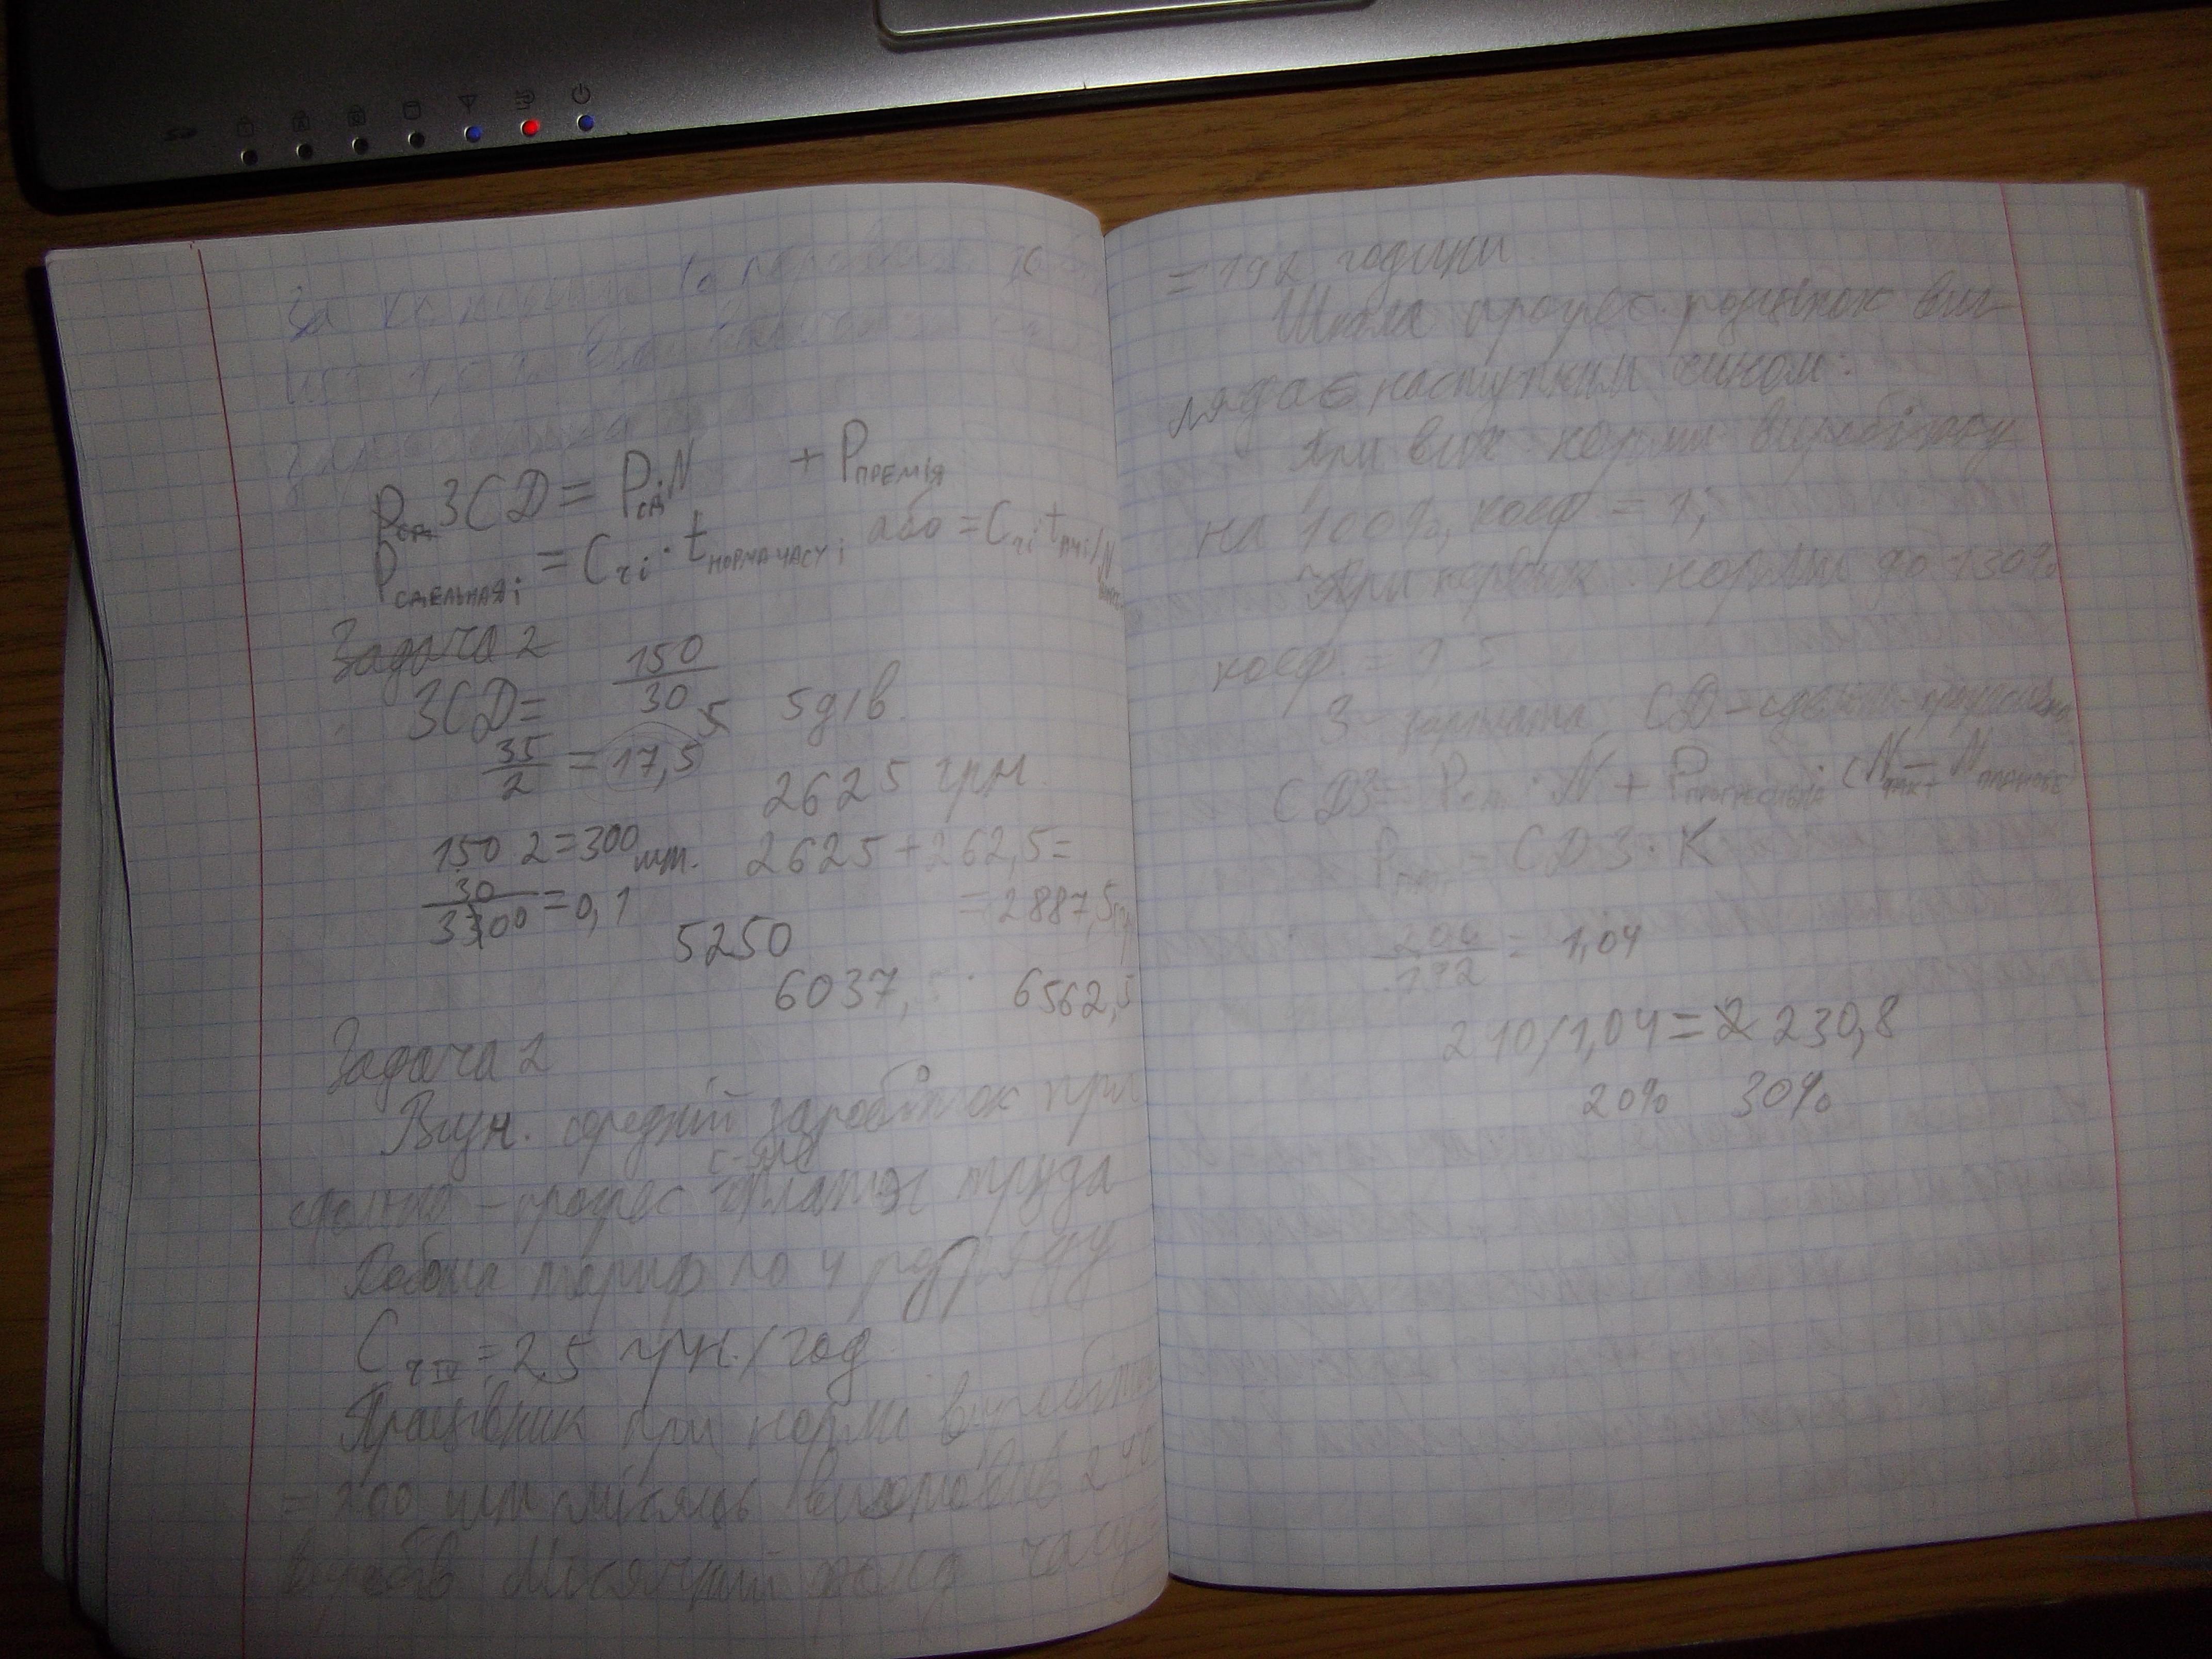 За
P сд ЗСD = P сд i N + P ПРЕМІЯ
P СДЕЛЬНАЯ i = C ч i · t НОРМА ЧАСУ i або = C ч i t
Задача 2
ЗСD = 150/30 5 5 дів.
35/2 = 17,5
2625 грн.
150 2 = 300 шт. 2625 + 262,5 =
30/3300 = 0,1 = 2887,5
5250
6037,5 6562,5
Задача 2
Визн. середній заробіток при
сдельно - прогрес оплате труда
Робота тариф по 4 розряду
C ч IV = 25 грн./год
Працівник при нормі виробітку
= 200 шт місяць виготовив 240
виробів Місячний фонд часу =
= 192 години
Шкала прогрес. розцінок виг-
лядає наступним чином:
При вик. норми виробітку
на 100%, коеф = 1,
При норми до 130%
коеф. = 1 5
З - зарплата, CD - сдельно-прогрессивна
СDЗ = P · N + P ПРОГРЕСИВНА · (N ФАКТ - N ПЛАНОВЕ
P = СDЗ · К
204/192 = 1,04
240/1,04 = 230,8
20% 30%